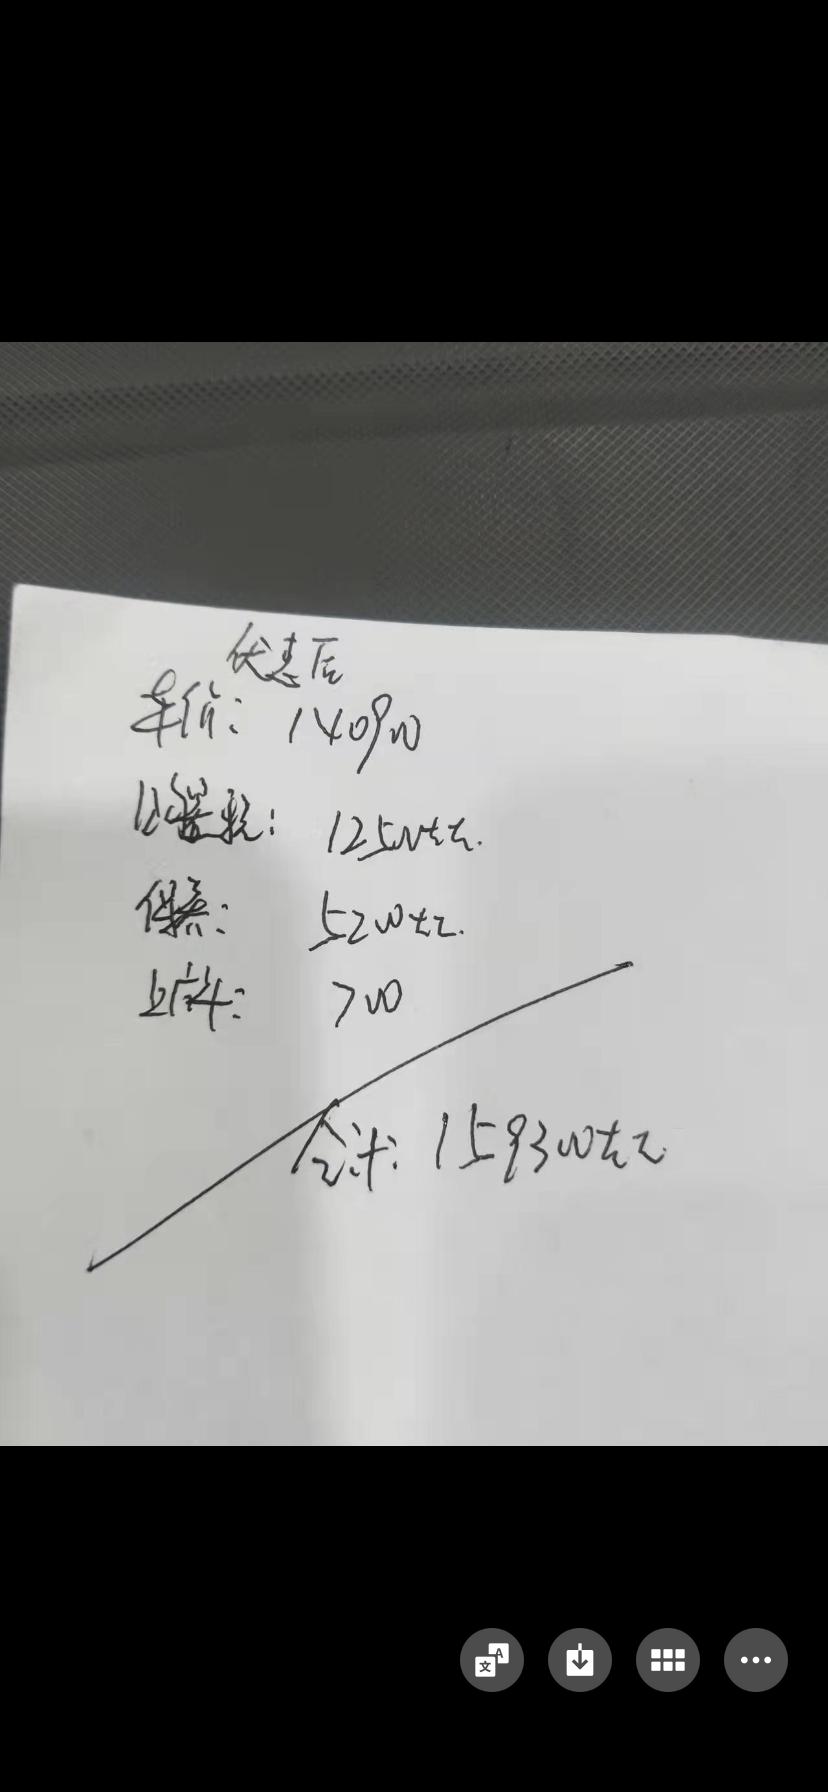 优惠后
车价: 140900
购置税: 12500左右.
保养: 5200左右.
上户牛: 700
合计: 159300左右.